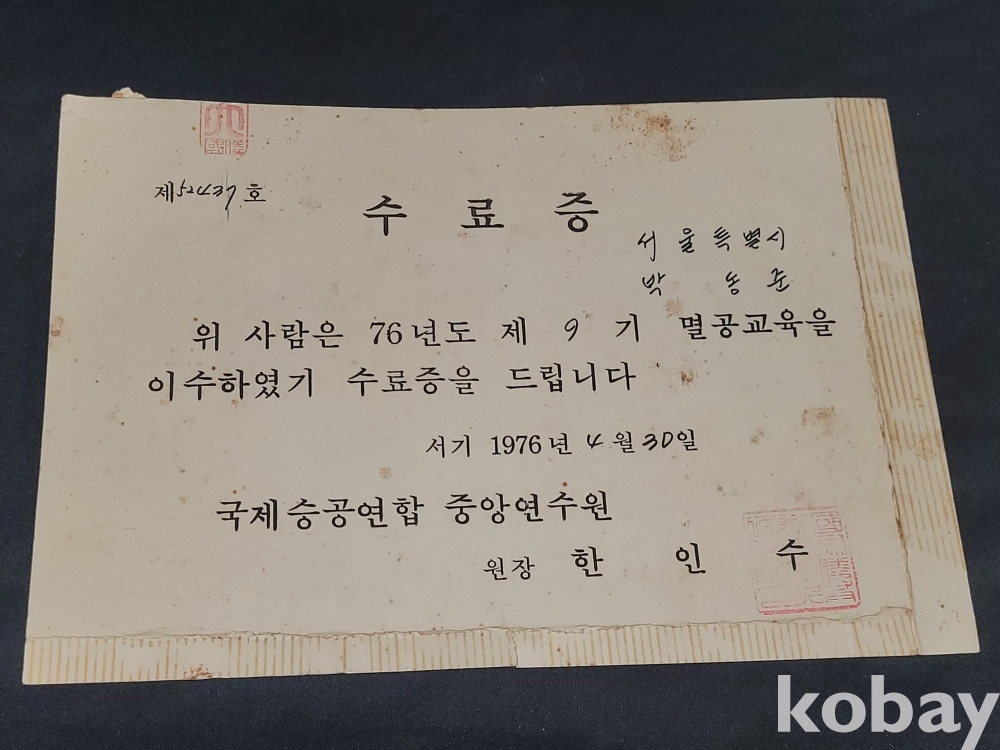 제52437호
수료증
서울특별시
박 동 준
위 사람은 76년도 제 9 기 멸공교육을
이수하였기 수료증을 드립니다
서기 1976년 4월 30일
국제승공연합 중앙연수원
원장 한 인 수
kobay